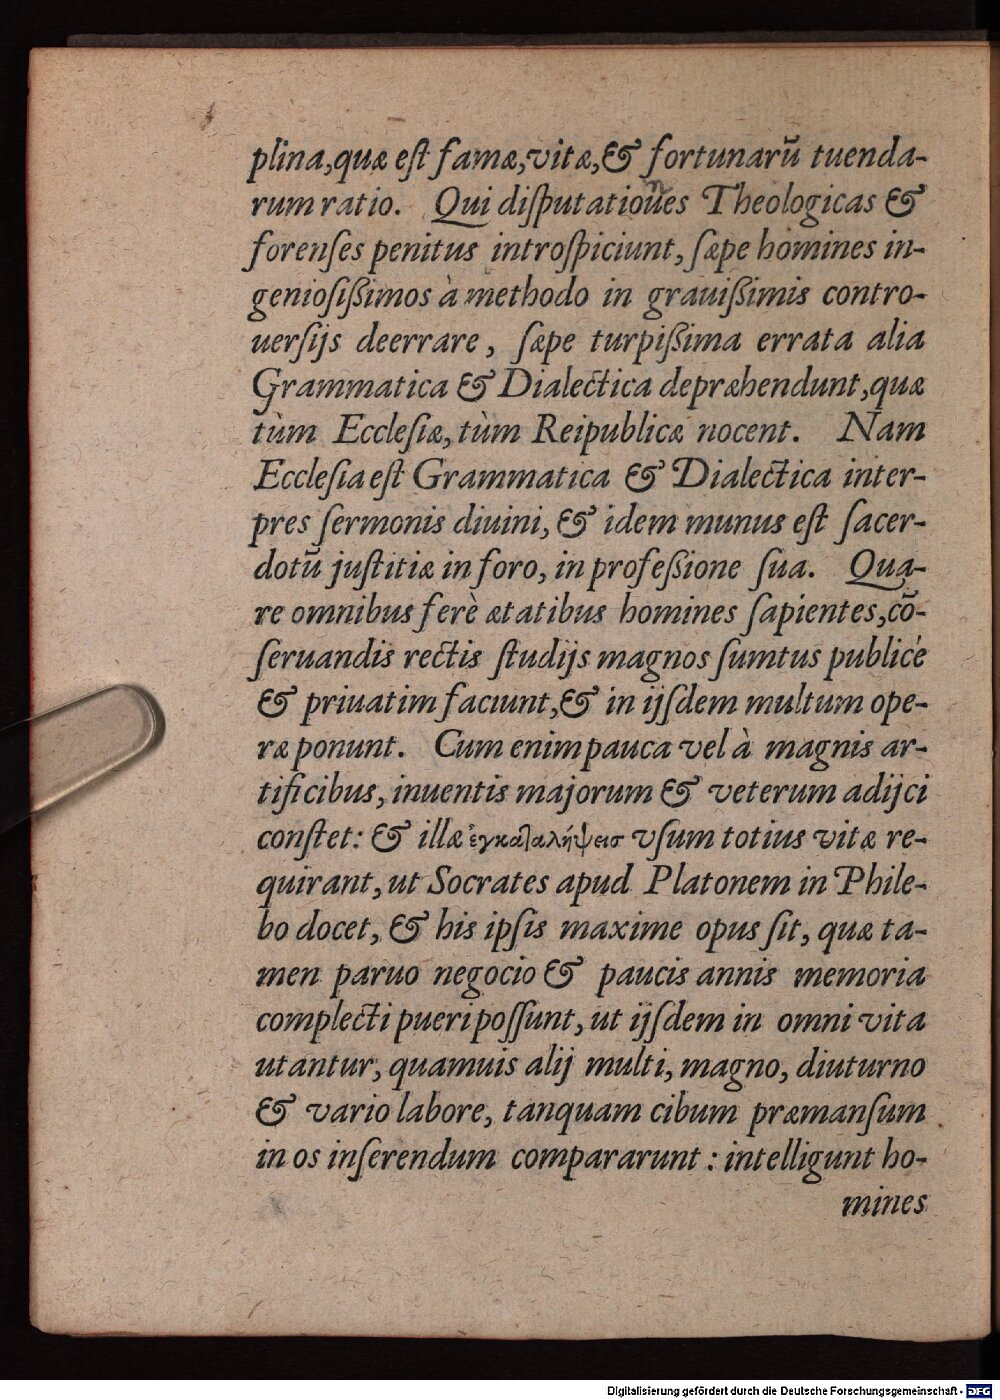 plina,quæ eſt famæ,vitæ,& fortunarū tuenda-
rum ratio. Qui diſputationes Theologicas &
forenſes penitus introſpiciunt, ſæpe homines in-
genioſiſſimos à methodo in grauiſſimis contro-
uerſijs deerrare, ſæpe turpiſſima errata alia
Grammatica & Dialectica depræhendunt,quæ
tùm Eccleſiæ, tùm Reipublicæ nocent. Nam
Eccleſia eſt Grammatica & Dialectica inter-
pres ſermonis diuini, & idem munus eſt ſacer-
dotū juſtitiæ in foro, in profeſſione ſua. Qua-
re omnibus ferè ætatibus homines ſapientes,cō-
ſeruandis rectis ſtudijs magnos ſumtus publicè
& priuatim faciunt,& in ijſdem multum ope-
ræ ponunt. Cum enim pauca vel à magnis ar-
tificibus, inuentis majorum & veterum adijci
conſtet: & illæ ἐγκαταλήψεισ vſum totius vitæ re-
quirant, ut Socrates apud Platonem in Phile-
bo docet, & his ipſis maxime opus ſit, quæ ta-
men paruo negocio & paucis annis memoria
complecti pueri poſſunt, ut ijſdem in omni vita
utantur, quamuis alij multi, magno, diuturno
& vario labore, tanquam cibum præmanſum
in os inſerendum compararunt : intelligunt ho-
mines
Digitalisierung gefördert durch die Deutsche Forschungsgemeinschaft - DFG